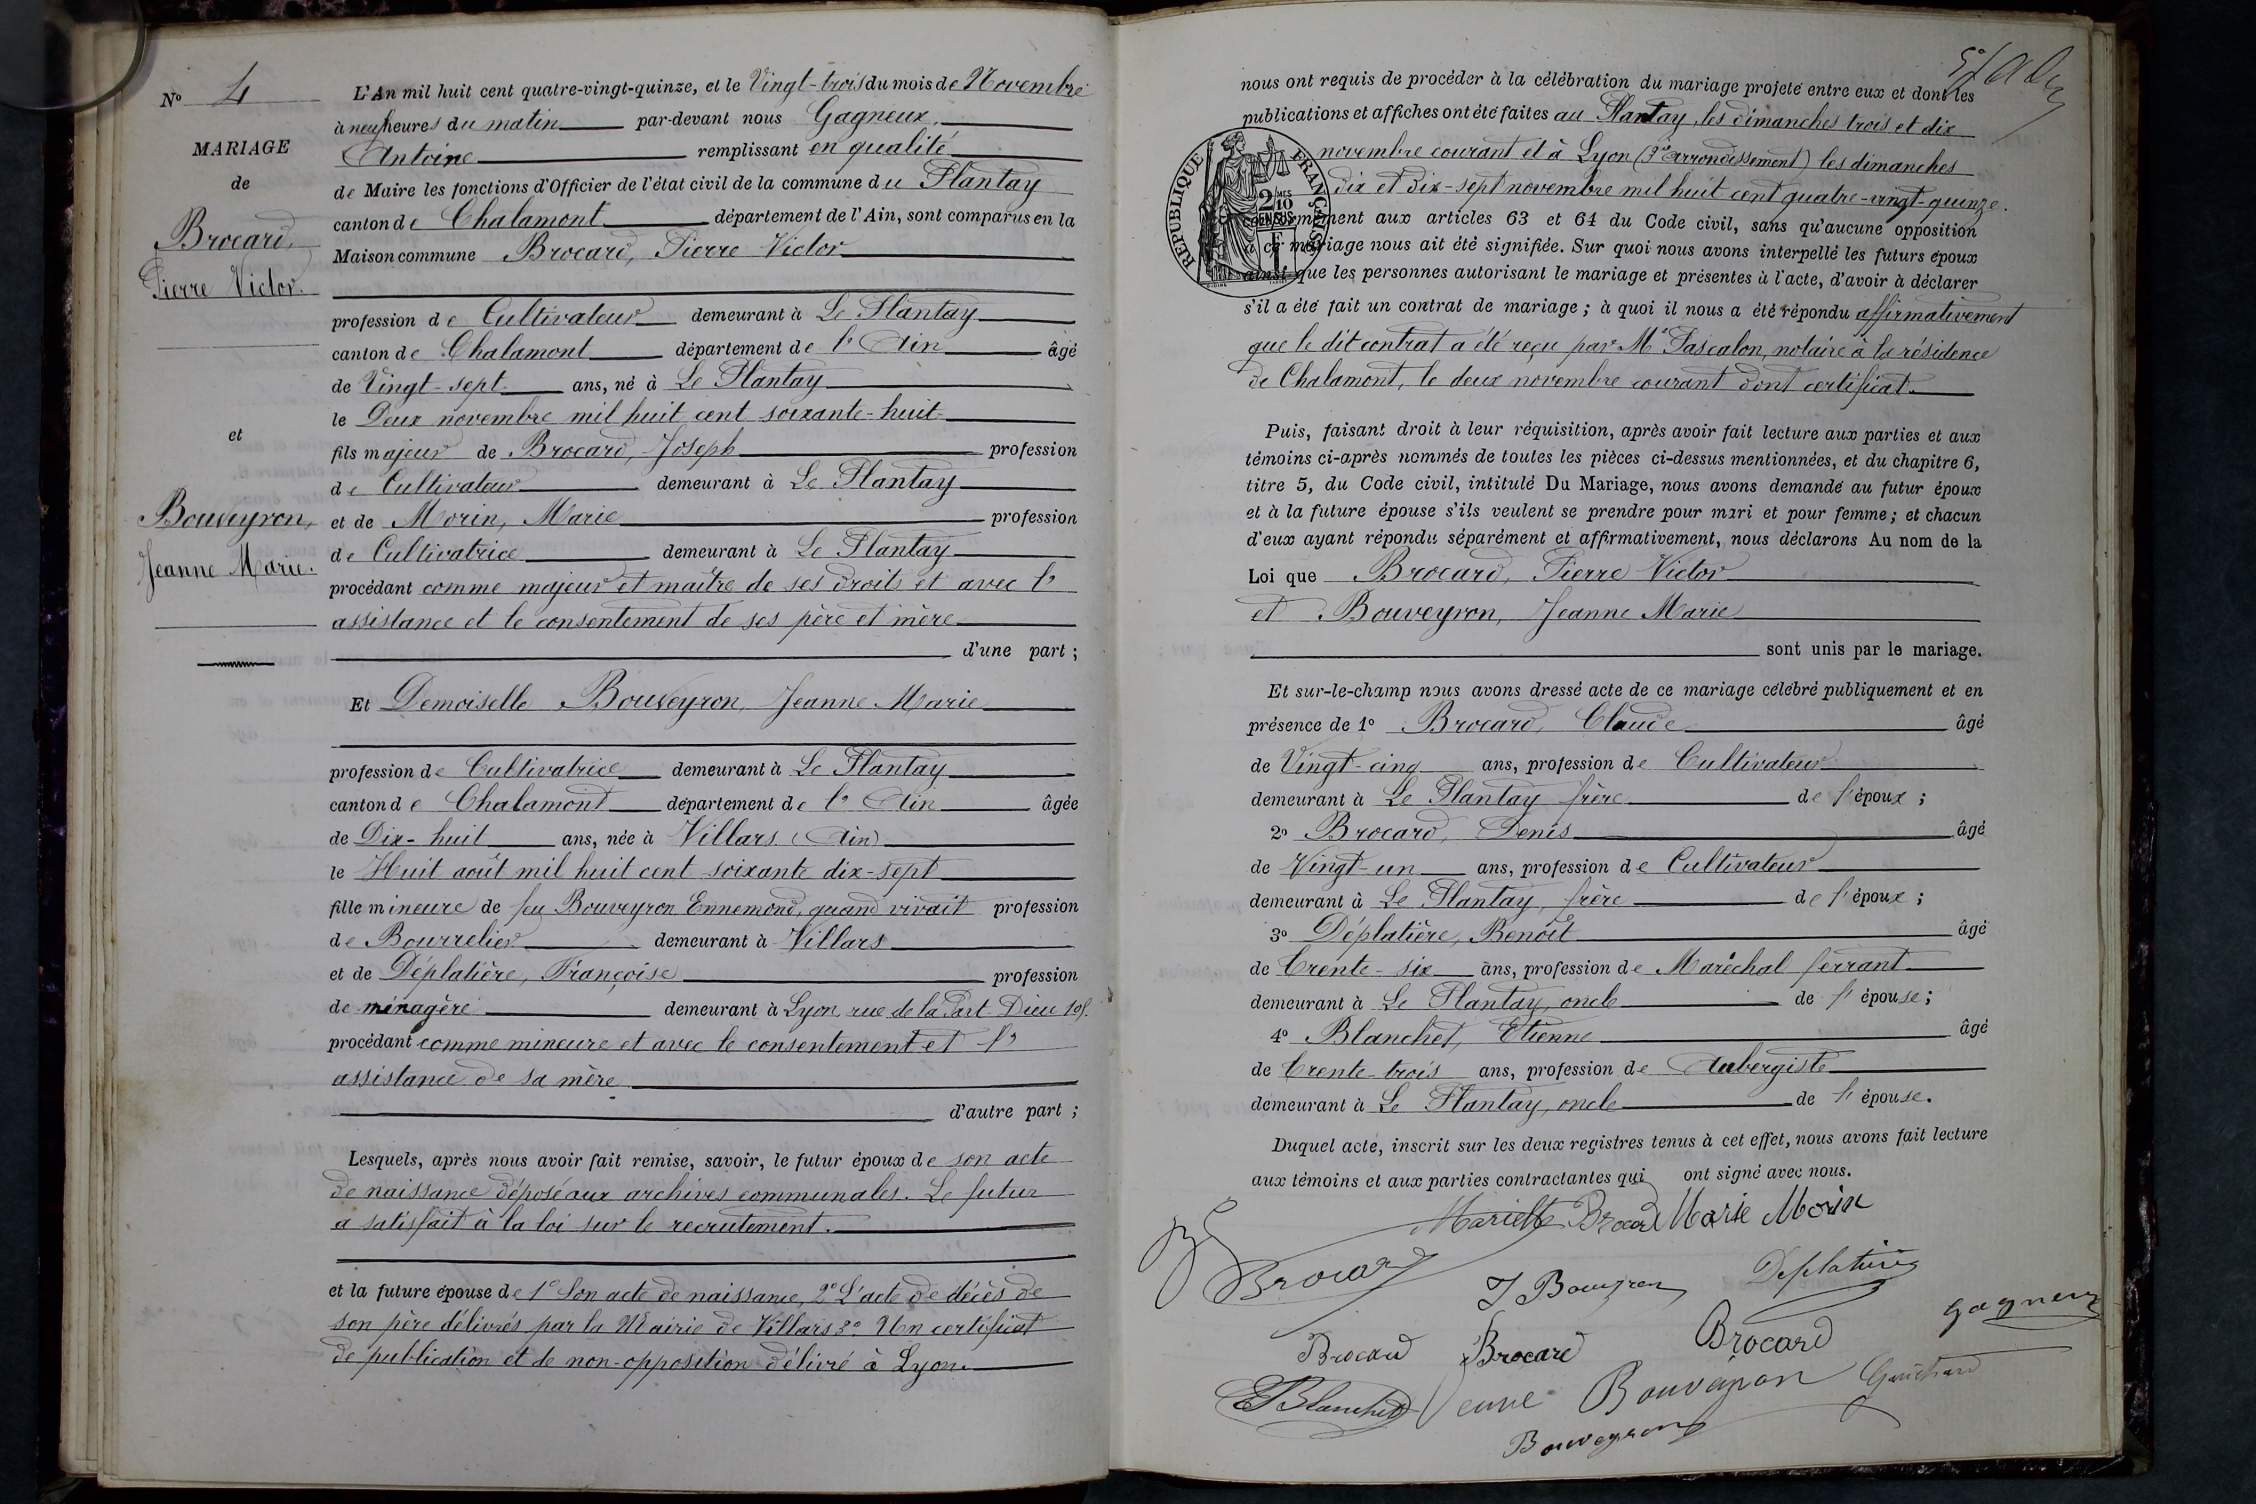 N° 4
MARIAGE
de
Brocard,
Pierre Victor.
et
Bouveyron,
Jeanne Marie.
L'An mil huit cent quatre-vingt-quinze, et le Vingt-trois du mois de Novembre
à neuf heures du matin par-devant nous Gagneux,
Antoine remplissant en qualité
de Maire les fonctions d'Officier de l'état civil de la commune du Plantay
canton de Chalamont département de l'Ain, sont comparus en la
Maison commune Brocard, Pierre Victor
profession de Cultivateur demeurant à Le Plantay
canton de Chalamont département de l'Ain âgé
de Vingt-sept ans, né à Le Plantay
le Deux novembre mil huit cent soixante-huit
fils majeur de Brocard, Joseph profession
de Cultivateur demeurant à Le Plantay
et de Morin, Marie profession
de Cultivatrice demeurant à Le Plantay
procédant comme majeur et maître de ses droits et avec l'
assistance et le consentement de ses père et mère
d'une part ;
Et Demoiselle Bouveyron, Jeanne Marie
profession de Cultivatrice demeurant à Le Plantay
canton de Chalamont département de l'Ain âgée
de Dix-huit ans, née à Villars (Ain)
le Huit août mil huit cent soixante dix-sept
fille mineure de feu Bouveyron Ennemond, quand vivait profession
de Bourrelier demeurant à Villars
et de Déplatière, Françoise profession
de ménagère demeurant à Lyon, rue de la Part-Dieu
procédant comme mineure et avec le consentement et l'
assistance de sa mère
d'autre part ;
Lesquels, après nous avoir fait remise, savoir, le futur époux de son acte
de naissance déposé aux archives communales. Le futur
a satisfait à la loi sur le recrutement.
et la future épouse de 1° Son acte de naissance, 2° L'acte de décès de
son père délivrés par la Mairie de Villars 3° Un certificat
de publication et de non-opposition délivré à Lyon.
nous ont requis de procéder à la célébration du mariage projeté entre eux et dont les
publications et affiches ont été faites au Plantay, les dimanches trois et dix
novembre courant et à Lyon (3e Arrondissement) les dimanches
dix et dix-sept novembre mil huit cent quatre-vingt-quinze.
RÉPUBLIQUE FRANÇAISE
2/10 MES
EN SUS
1 F.
conformément aux articles 63 et 64 du Code civil, sans qu'aucune opposition
à ce mariage nous ait été signifiée. Sur quoi nous avons interpellé les futurs époux
ainsi que les personnes autorisant le mariage et présentes à l'acte, d'avoir à déclarer
s'il a été fait un contrat de mariage ; à quoi il nous a été répondu affirmativement
que le dit contrat a été reçu par Me Pascalon, notaire à la résidence
de Chalamont, le deux novembre courant dont certificat.
Puis, faisant droit à leur réquisition, après avoir fait lecture aux parties et aux
témoins ci-après nommés de toutes les pièces ci-dessus mentionnées, et du chapitre 6,
titre 5, du Code civil, intitulé Du Mariage, nous avons demandé au futur époux
et à la future épouse s'ils veulent se prendre pour mari et pour femme ; et chacun
d'eux ayant répondu séparément et affirmativement, nous déclarons Au nom de la
Loi que Brocard, Pierre Victor
et Bouveyron, Jeanne Marie
sont unis par le mariage.
Et sur-le-champ nous avons dressé acte de ce mariage célébré publiquement et en
présence de 1° Brocard, Claude âgé
de Vingt-cinq ans, profession de Cultivateur
demeurant à Le Plantay frère de l'époux ;
2° Brocard, Denis âgé
de Vingt-un ans, profession de Cultivateur
demeurant à Le Plantay, frère de l'époux ;
3° Déplatière, Benoît âgé
de Trente-six ans, profession de Maréchal ferrant
demeurant à Le Plantay, oncle de l'épouse ;
4° Blanchet, Etienne âgé
de Trente-trois ans, profession de Aubergiste
demeurant à Le Plantay, oncle de l'épouse.
Duquel acte, inscrit sur les deux registres tenus à cet effet, nous avons fait lecture
aux témoins et aux parties contractantes qui ont signé avec nous.
Mariette Brocard Marie Morin
Brocard J Bouveyron Déplatière
Gagneux
Brocard Brocard Brocard
E Blanchet Veuve Bouveyron Guichard
Bouveyron